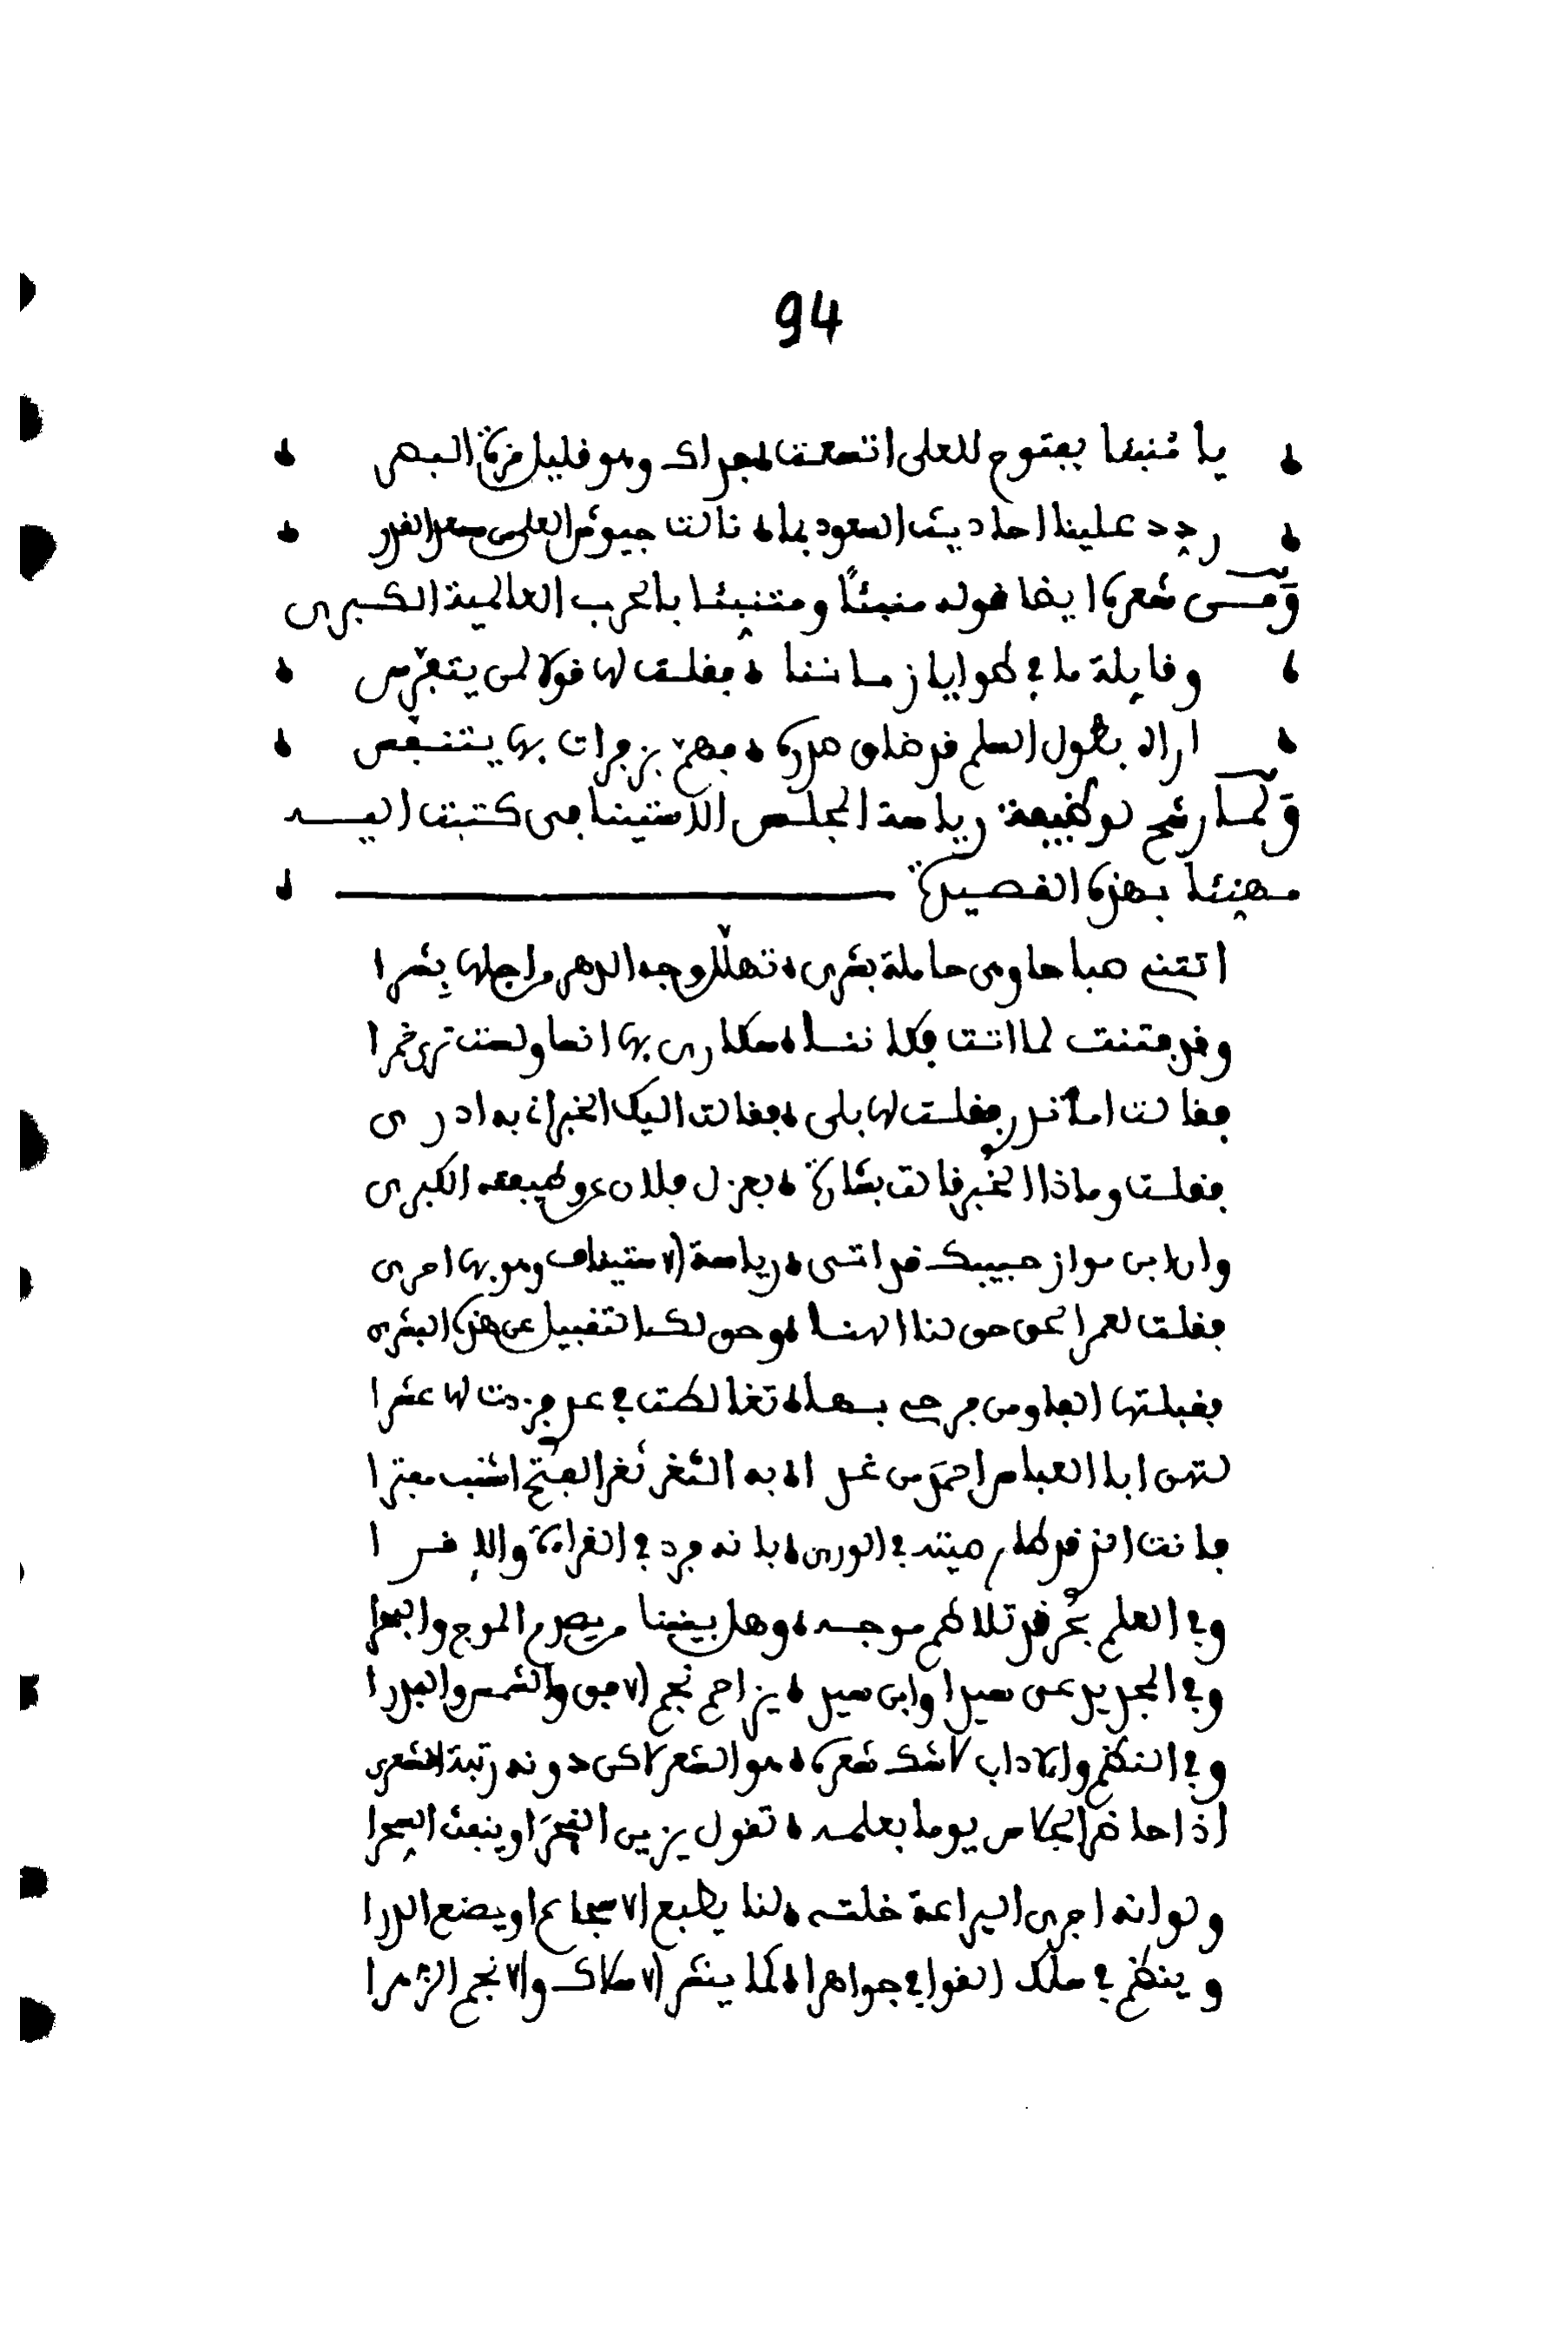 94
يا منبئا بفتوح للعلى اتسعت فجراك وهو قليل قرة البصر
ردد علينا احاديث السعود بما نالت جيوش العلى من سعد القدر
ومن شعره ايضا قوله منبئا ومتنبئا بالحرب العالمية الكبرى
وقايلة ما في طوايا زماننا فقلت لها قولا لمن يتفرس
اراه بطول السلم قد ضاق صدره فهم بزفرات بها يتنفس
ولما رشح لوظيفة رياسة المجلس الاستينافي كتبت اليه
مهنئا بهذه القصيدة
اتتني صباحا وهي حاملة بشرى تهلل وجه الدهر من اجلها بشرا
وقد فتنت لما اتت فكاننا سكارى بها انسا ولست ترى خمرا
فقالت اما تدر فقلت لها بلى فقالت اليك الخبر اني به ادرى
فقلت وماذا الخبر قالت بشارة بعزل فلان عن وظيفه الكبرى
وان ابن مواز حبيبك قد اتى رياسة الاستيناف وهو بها احرى
فقلت لعمر الحق حق لنا الهنا وحق لك التقبيل عن هذه البشرى
فقبلتها الفا ومن فرحي بها تغالطت في عد فزدت لها عشرا
لتهن ابا العباس احمد من غدا به الثغر ثغر الفتح اشنب مفترا
فانت الذي قد طار صيته في الورى بانه فرد في القراءة والاقرا
وفي العلم بحر قد تلاطم موجه وهل بيننا من يصدم الموج والبحرا
وفي المجد يدعى سيدا وابن سيد يزاحم نجم الافق والشمس والبدرا
وفي النظم والاداب لا شك شعره هو الشعر لاكن دونه رتبة الشعرى
اذا حاضر الجلاس يوما بعلمه تقول يزين الفخر او ينفث السحرا
ولو انه اجرى اليراعة خلته لنا يطبع الاسجاع او يضع الدرا
وينظم في سلك القوافي جواهرا كما ينثر الاسلاك والانجم الزهرا